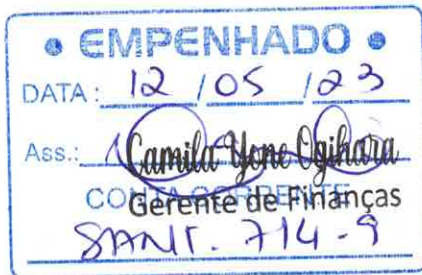 • EMPENHADO •
DATA: 12 / 05 / 23
Ass.: Camila Yone Ogihara
CONTA CORRENTE
Gerente de Finanças
SANT. 714-9